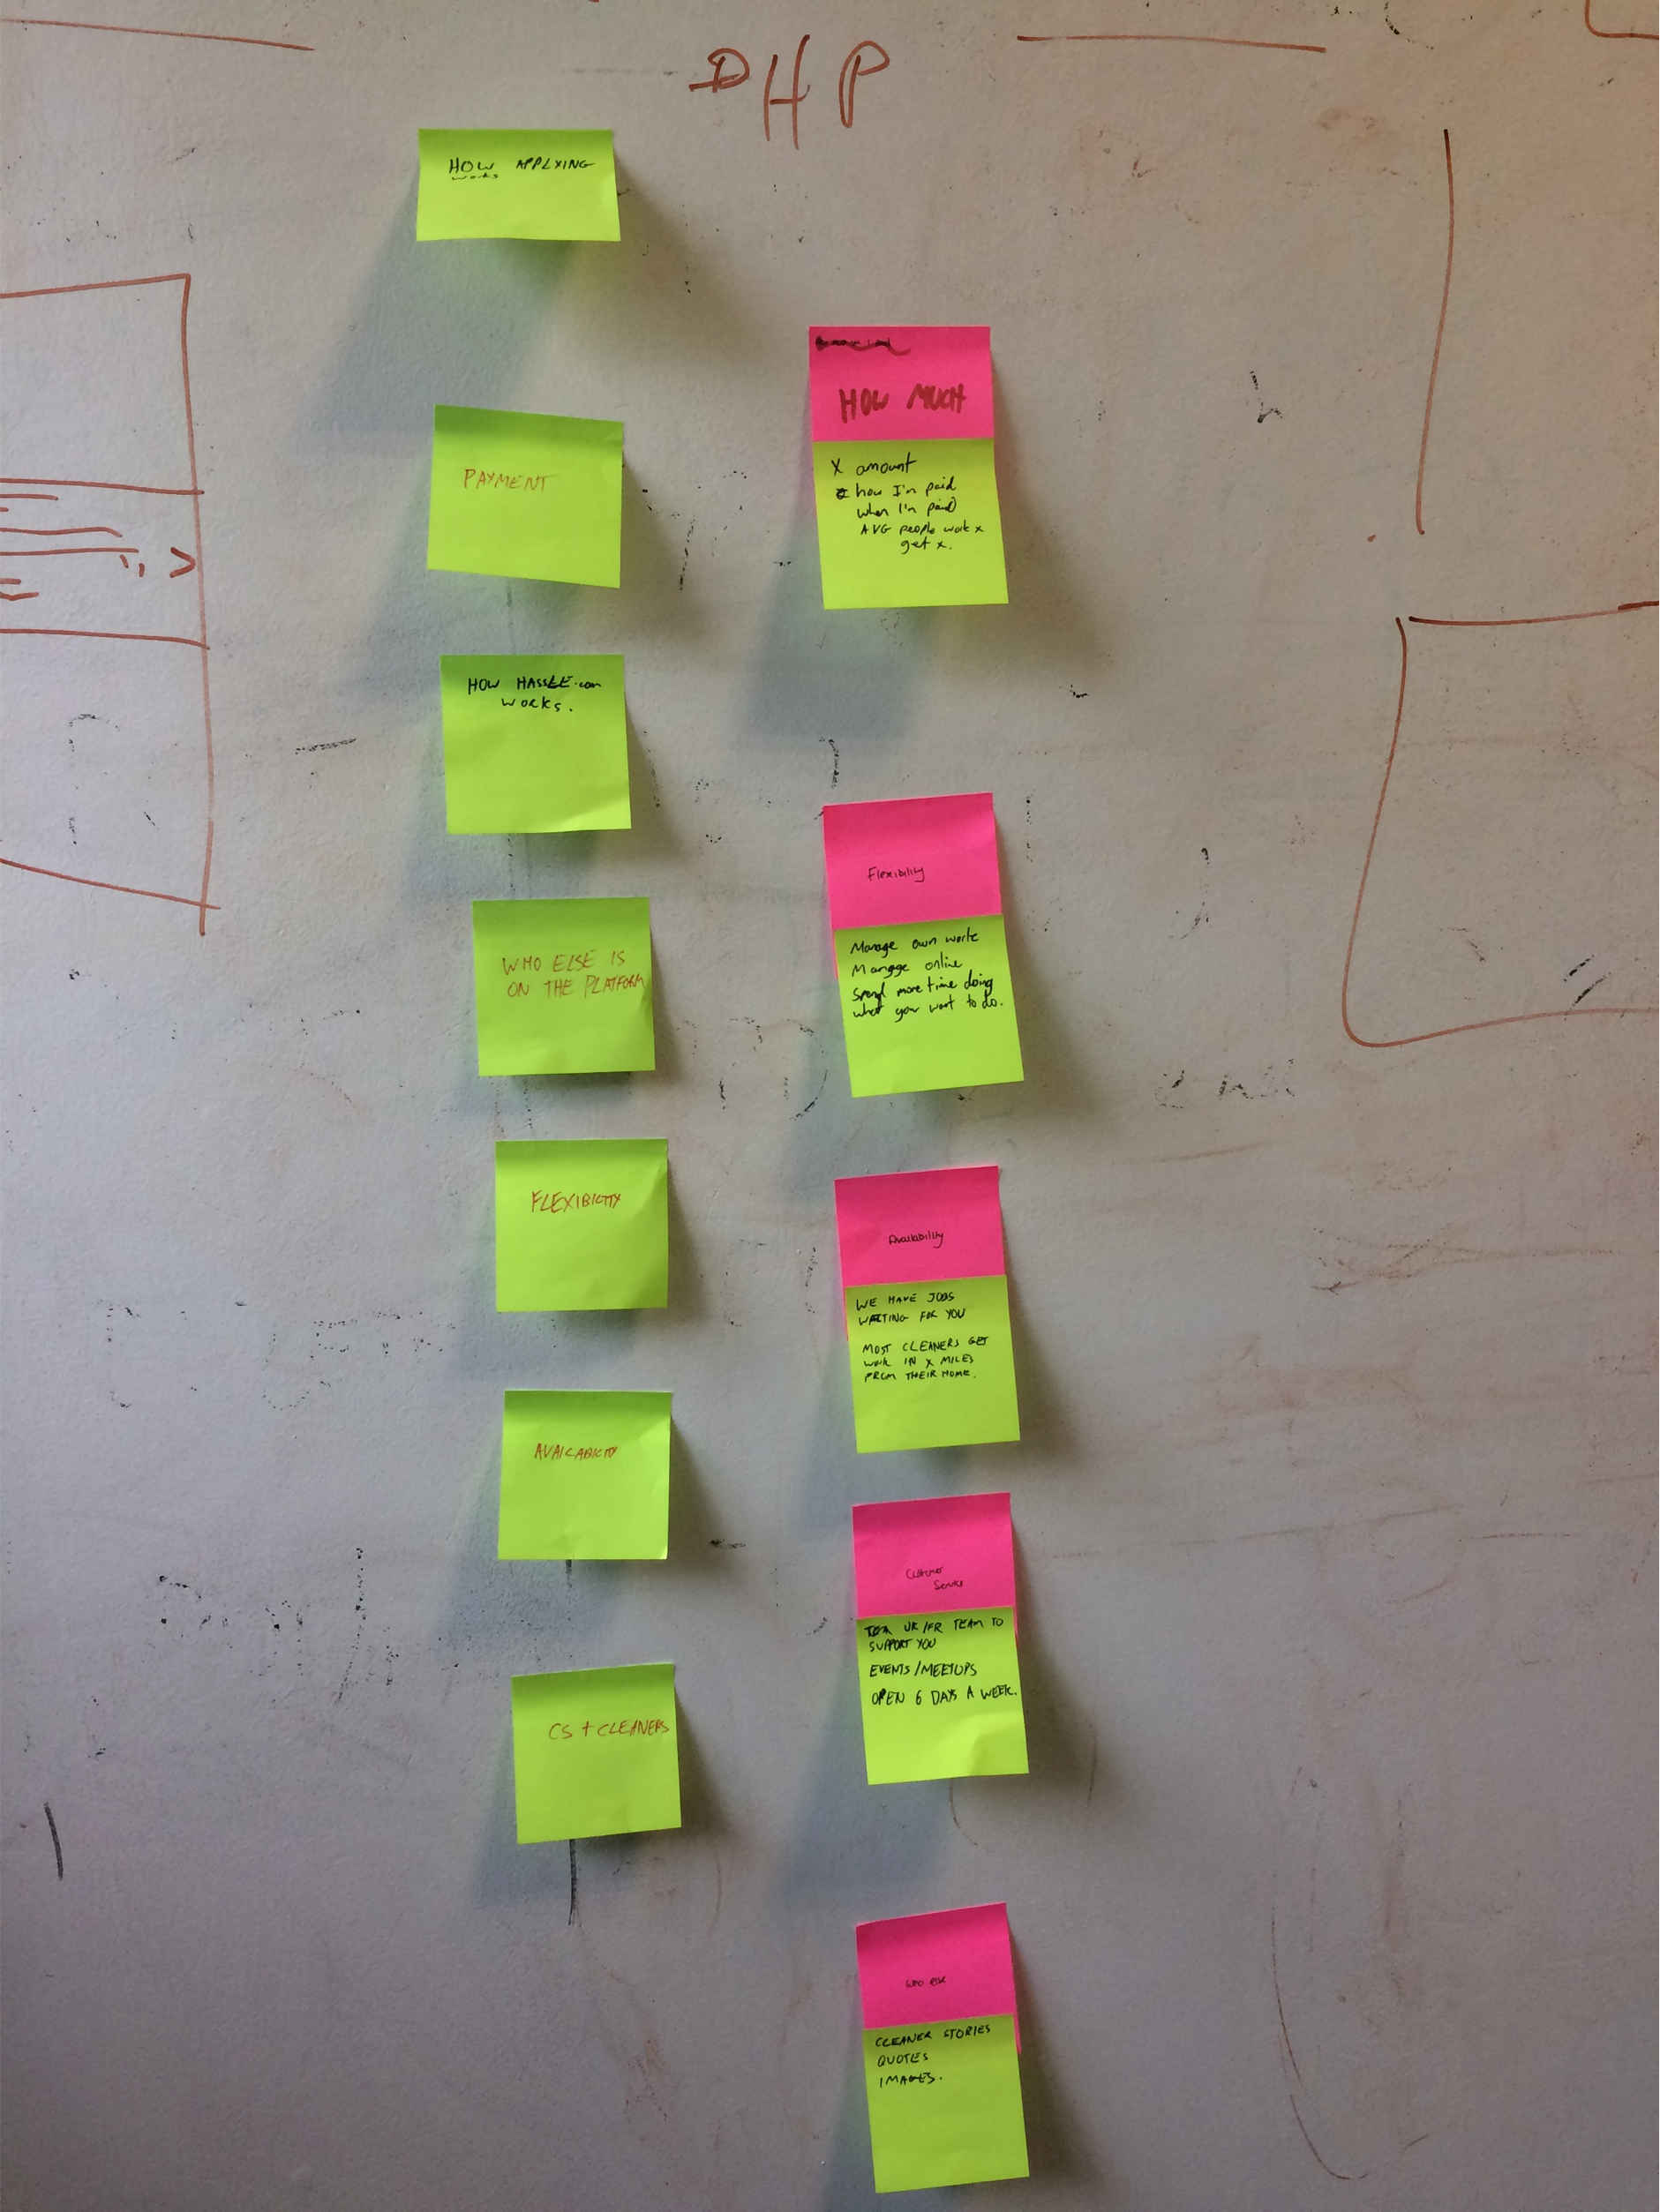 DHP
HOW APPLYING
works
PAYMENT
HOW HASSLE.com
WORKS.
WHO ELSE IS
ON THE PLATFORM
FLEXIBILITY
AVAILABILITY
CS + CLEANERS
HOW MUCH
X amount
how I'm paid
when I'm paid
AVG people work x
get x.
Flexibility
Manage own work
Manage online
Spend more time doing
what you want to do.
Availability
WE HAVE JOBS
WAITING FOR YOU
MOST CLEANERS GET
WORK IN X MILES
FROM THEIR HOME.
Customer
Service
UK/FR TEAM TO
SUPPORT YOU
EVENTS/MEETUPS
OPEN 6 DAYS A WEEK.
Who else
CLEANER STORIES
QUOTES
IMAGES.